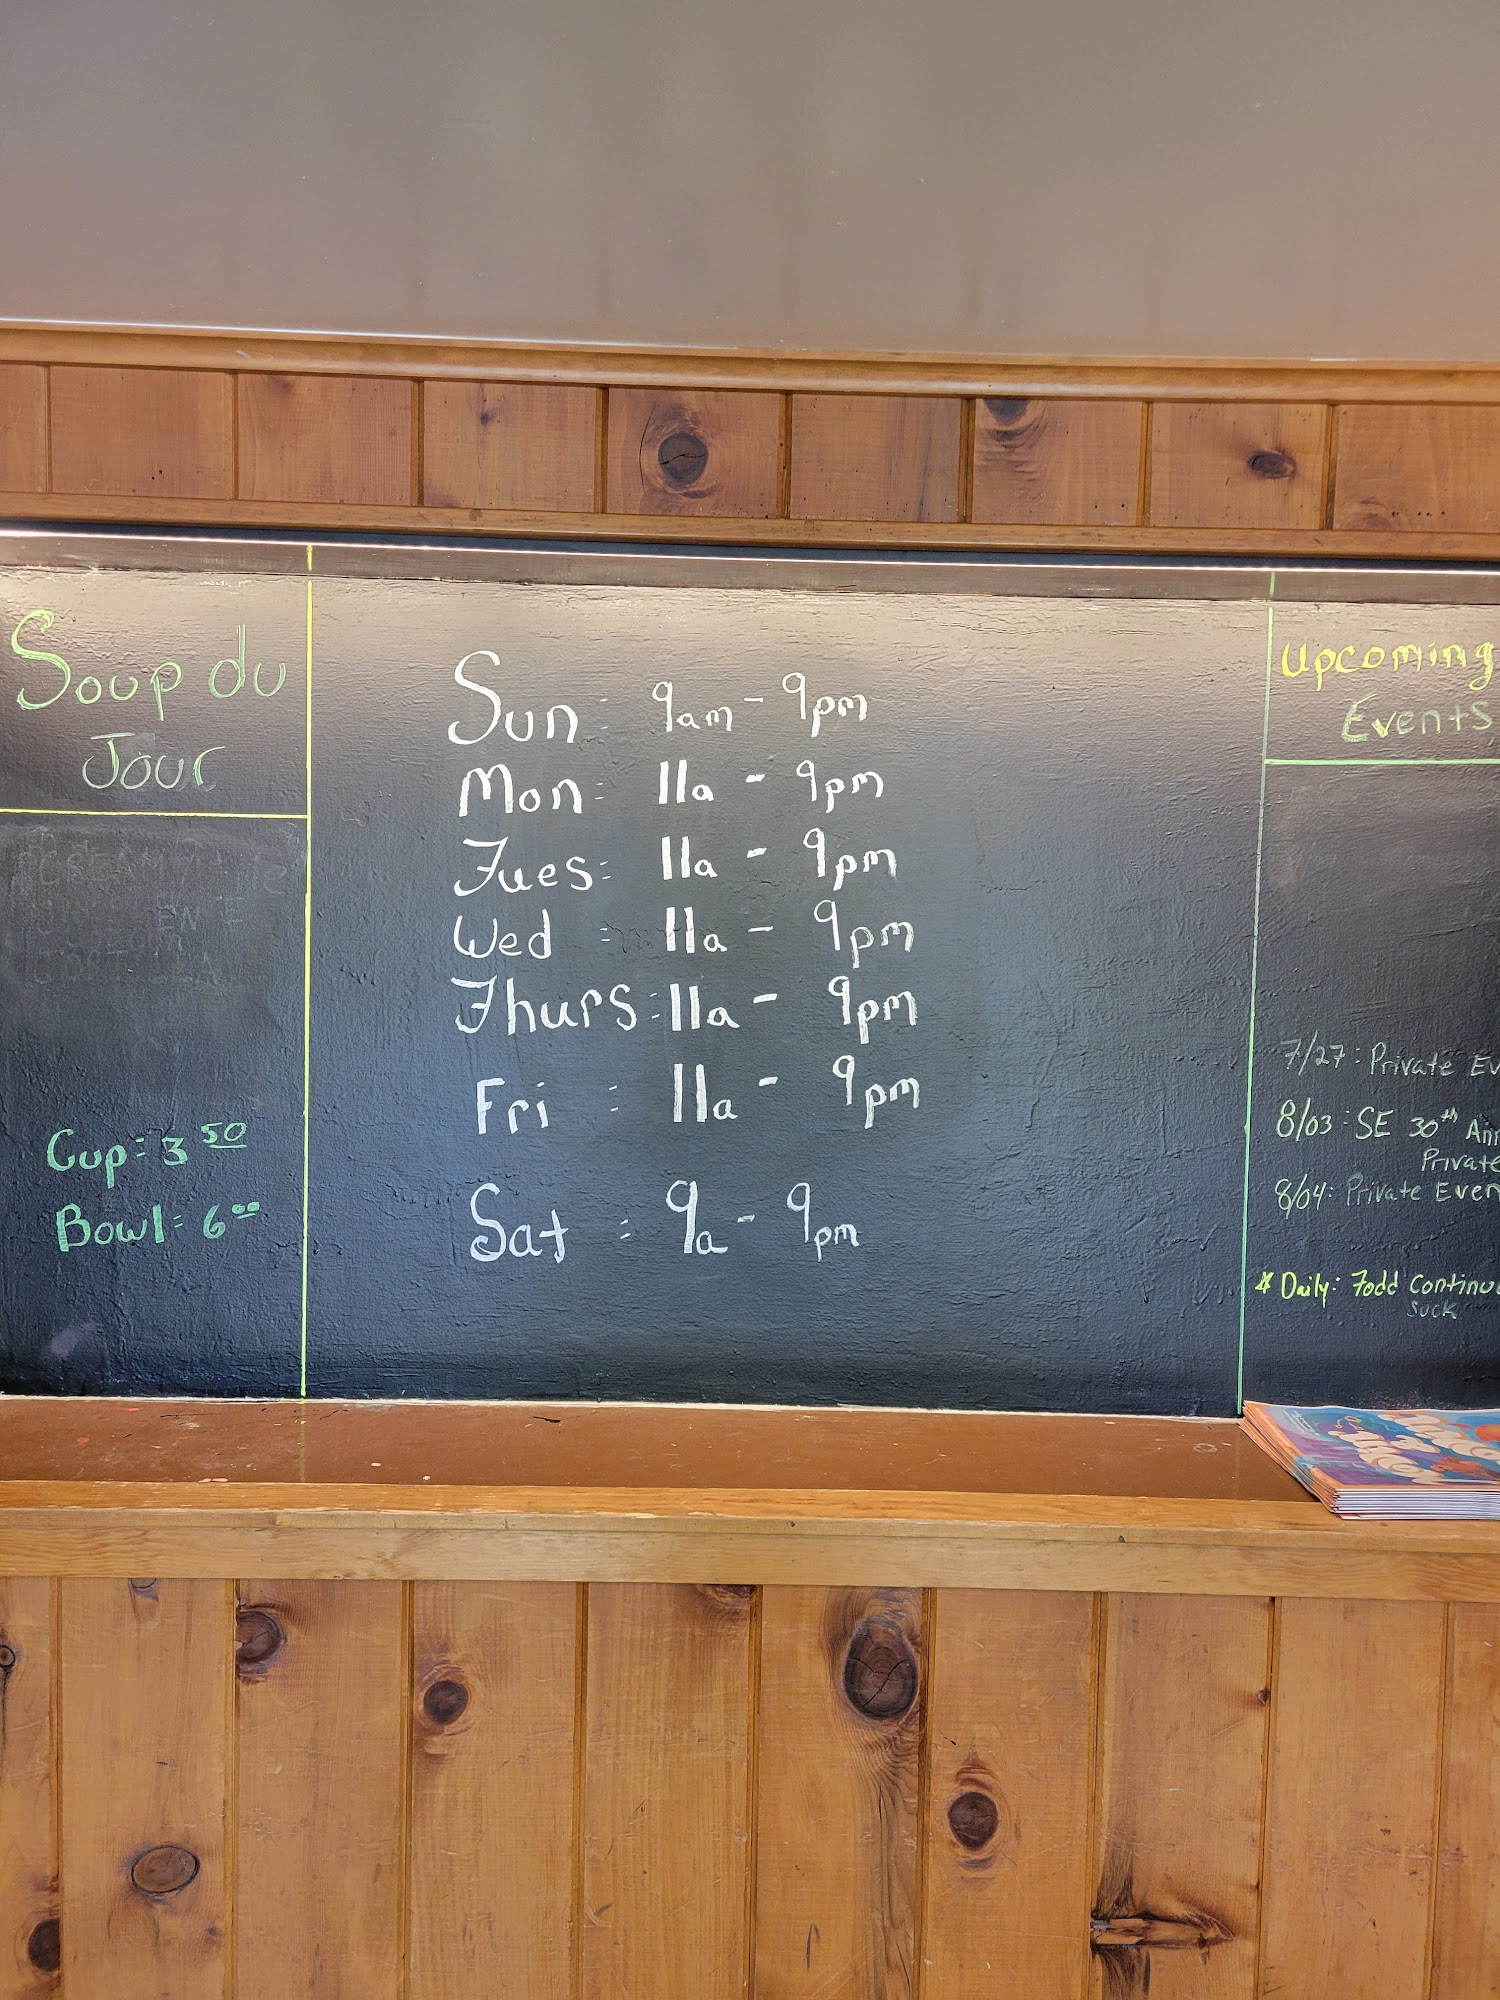 Soup du
Jour
Cup: 3 50
Bowl: 6 00
Sun: 9am - 9pm
Mon: 11a - 9pm
Tues: 11a - 9pm
Wed : 11a - 9pm
Thurs: 11a - 9pm
Fri : 11a - 9pm
Sat : 9a - 9pm
Upcoming
Events
7/27: Private Ev
8/03: SE 30th Ann
Private
8/04: Private Even
* Daily: Todd Continu
suck